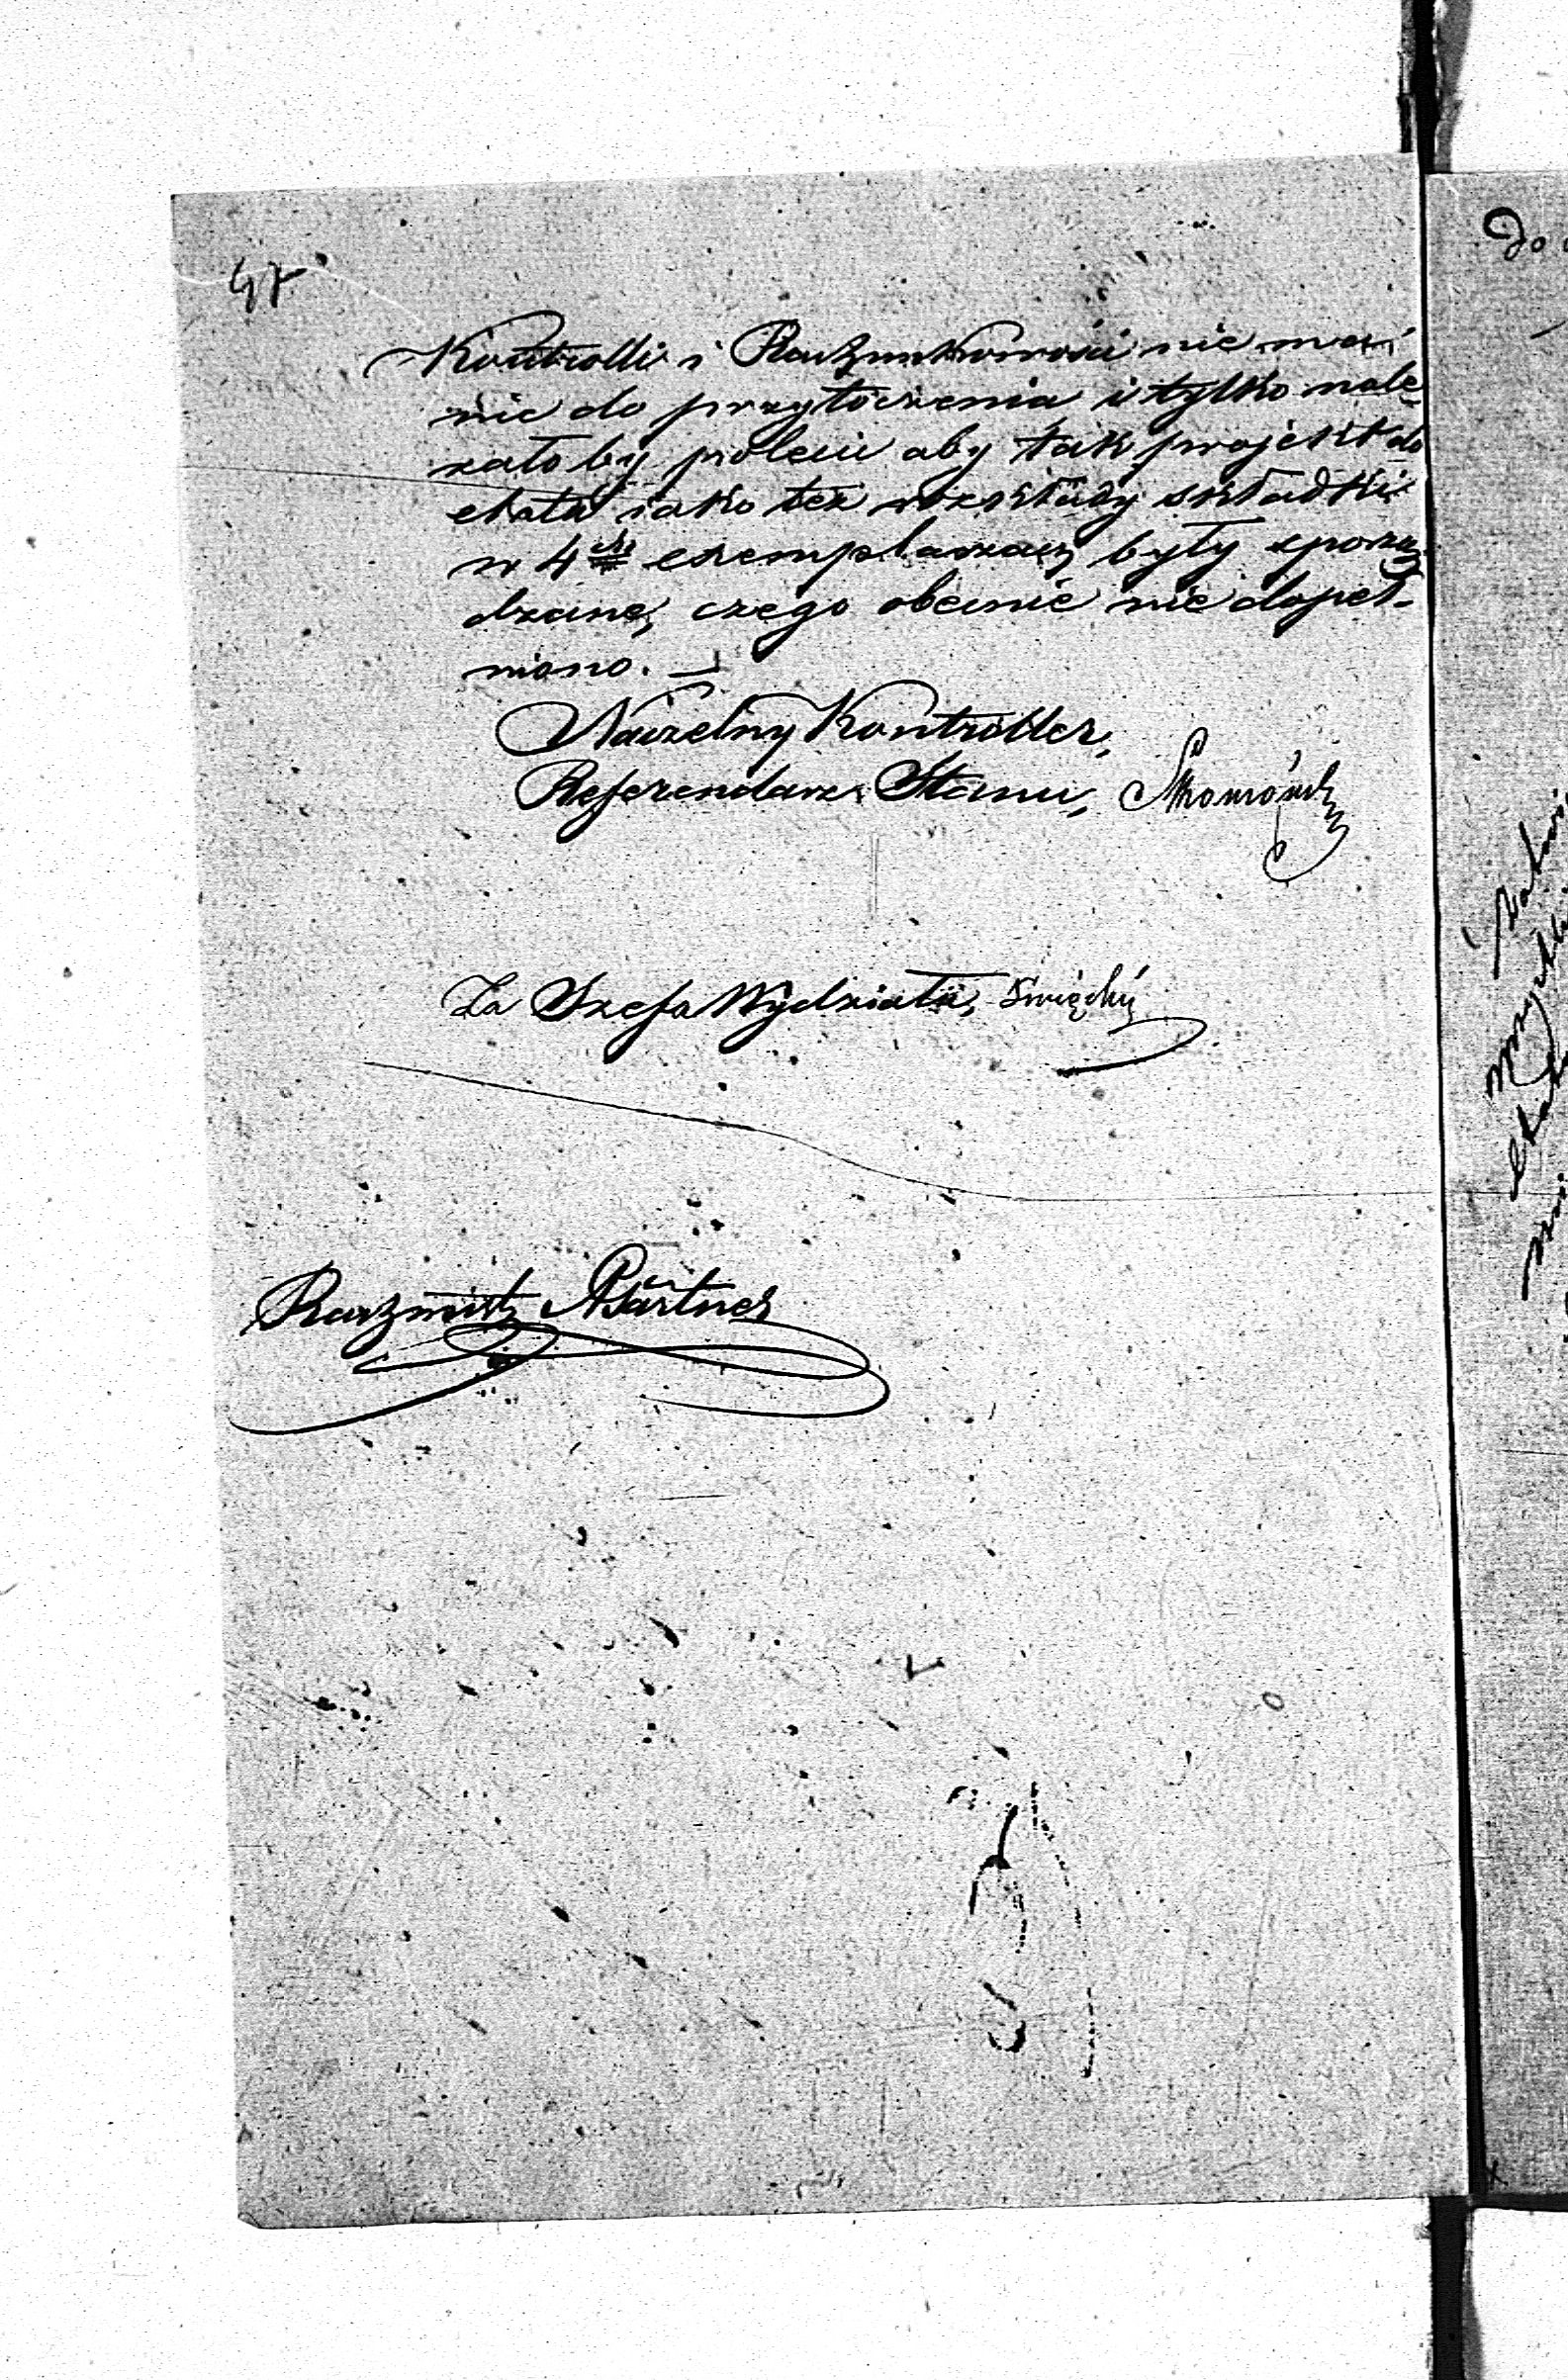 47
Kontrolli i Rachunkowości nie ma
nic do przytoczenia i tylko nale-
żałoby polecić aby tak projekt do
etatu iako też rozkłady składki
w 4ch exemplarzach były sporzą-
dzane, czego obecnie nie dopeł-
niono. —
Naczelny Kontroller,
Referendarz Stanu,
Za Szefa Wydziału, Święcki
Rachmistrz Bärtner
Do